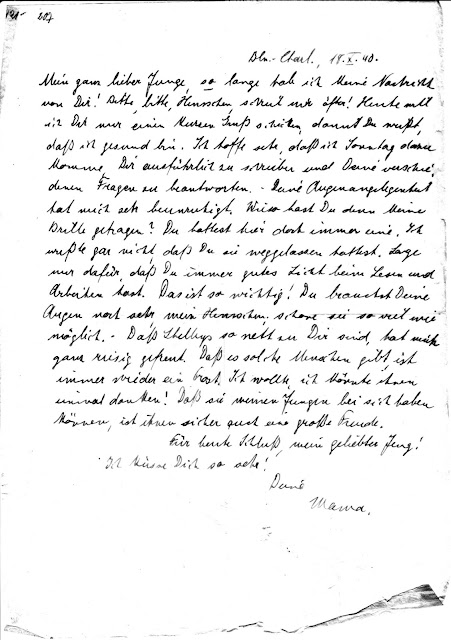 207
Bln.-Charl., 18.X.40.
Mein ganz lieber Junge, so lange hab ich keine Nachricht
von Dir! Bitte, bitte, Hennschen, schreib mir öfter! Heute will
ich Dir nur einen kurzen Gruß schicken, damit Du weißt,
daß ich gesund bin. Ich hoffe sehr, daß ich Sonntag dazu
komme, Dir ausführlich zu schreiben und Deine verschie
denen Fragen zu beantworten. - Deine Augenangelegenheit
hat mich sehr beunruhigt. Wieso hast Du denn keine
Brille getragen? Du hattest hier doch immer eine. Ich
wußte gar nicht daß Du sie weggelassen hattest. Sorge
nur dafür, daß Du immer gutes Licht beim Lesen und
Arbeiten hast. Das ist so wichtig! Du brauchst Deine
Augen noch sehr mein Hennschen, schone sie so viel wie
möglich. - Daß Shelleys so nett zu Dir sind, hat mich
ganz riesig gefreut. Daß es solche Menschen gibt, ist
immer wieder ein Trost. Ich wollte, ich könnte ihnen
einmal danken! Daß sie meinen Jungen bei sich haben
können, ist ihnen sicher auch eine große Freude.
Für heute Schluß, mein geliebter Jung!
Ich küsse Dich so sehr!
Deine
Mama.